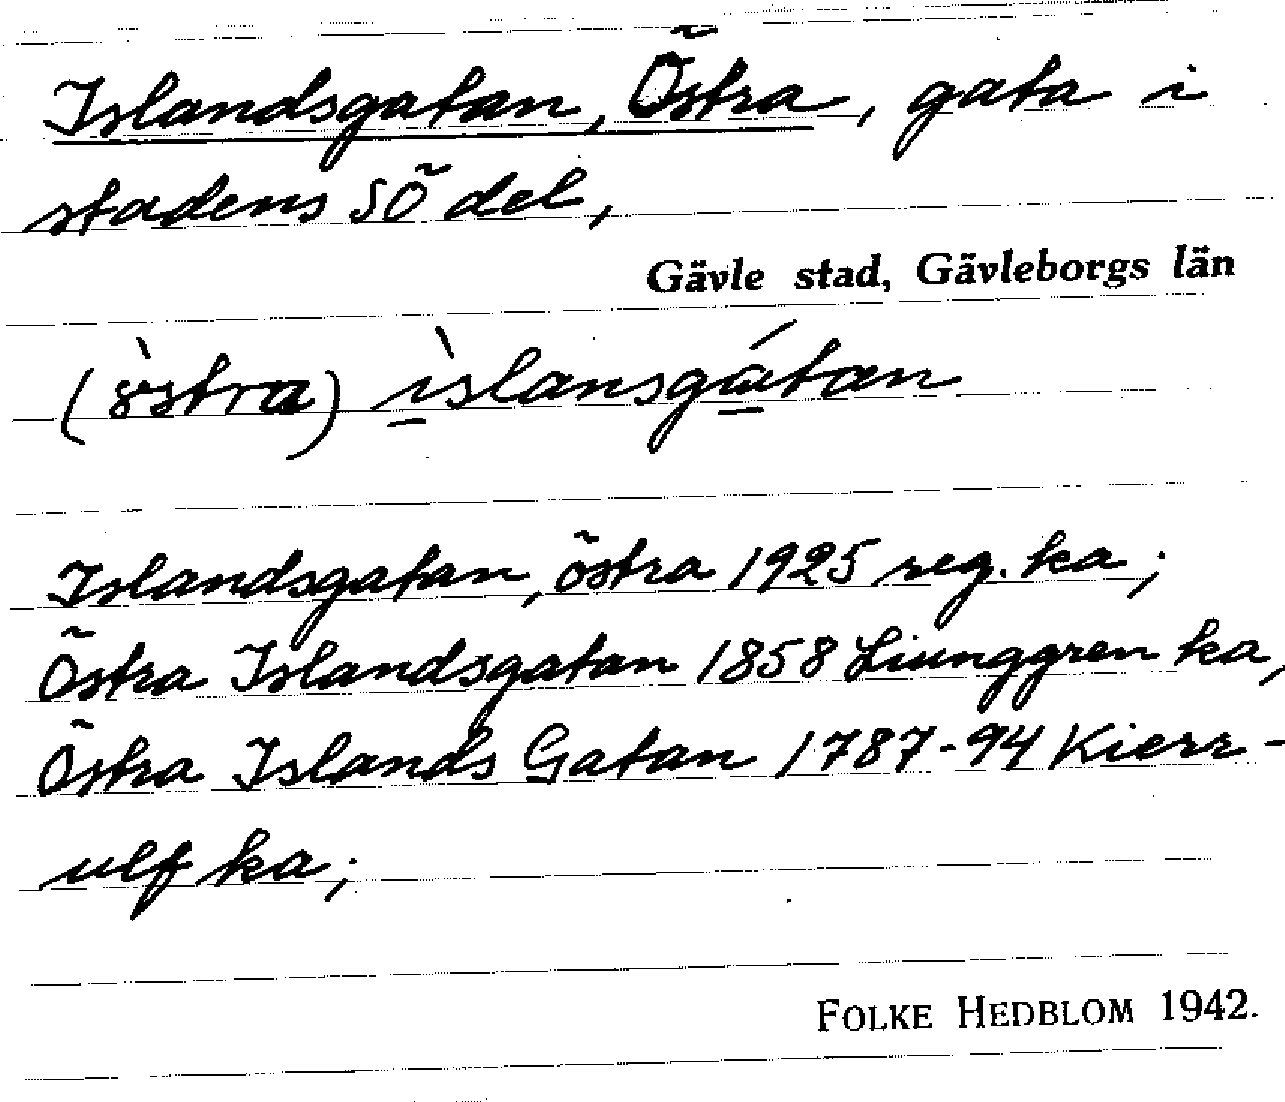 Islandsgatan, Östra, gata i
stadens SÖ del,
Gävle stad, Gävleborgs län
(östra) ìslansgátan
Islandsgatan, östra 1925 reg. ka;
Östra Islandsgatan 1858 Ljunggren ka,
Östra Islands Gatan 1787-94 Kierr-
ulf ka;
FOLKE HEDBLOM 1942.